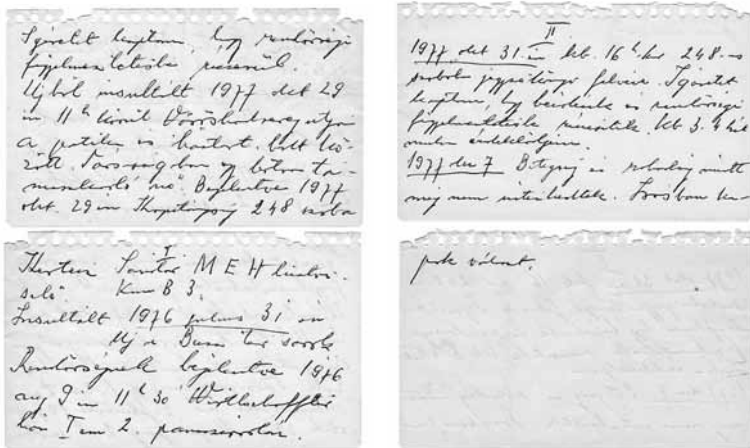 Igéretet kaptam, hogy rendőrségi
figyelmeztetésbe részesül.
Ujból insultált 1977 okt 29
én 11h körül Vöröshadsereg utján
a patika és háztart. bolt kö-
zött. Társaságban egy botra tá-
maszkodó nő. Bejelentve 1977
okt. 29 én Kapitányság 248 szoba
I
Sándor MEH
Kun B 3.
Insultált 1976 julius 31 én
tér sarok
Rendőrségnek bejelentve 1976
aug 9 én 11h 30
I em 2. panaszirodán.
II
1977 okt 31 én kb. 16h kor 248-as
szobába jegyzőkönyv felvéve. Igéretet
kaptam, hogy beidézik és rendőrségi
figyelmeztetésbe részesítik. kb 3-4 hét
mulva érdeklődjem.
1977 dec 7 Betegség és szabadság miatt
még nem intézkedtek. Írásban ka-
pok választ.